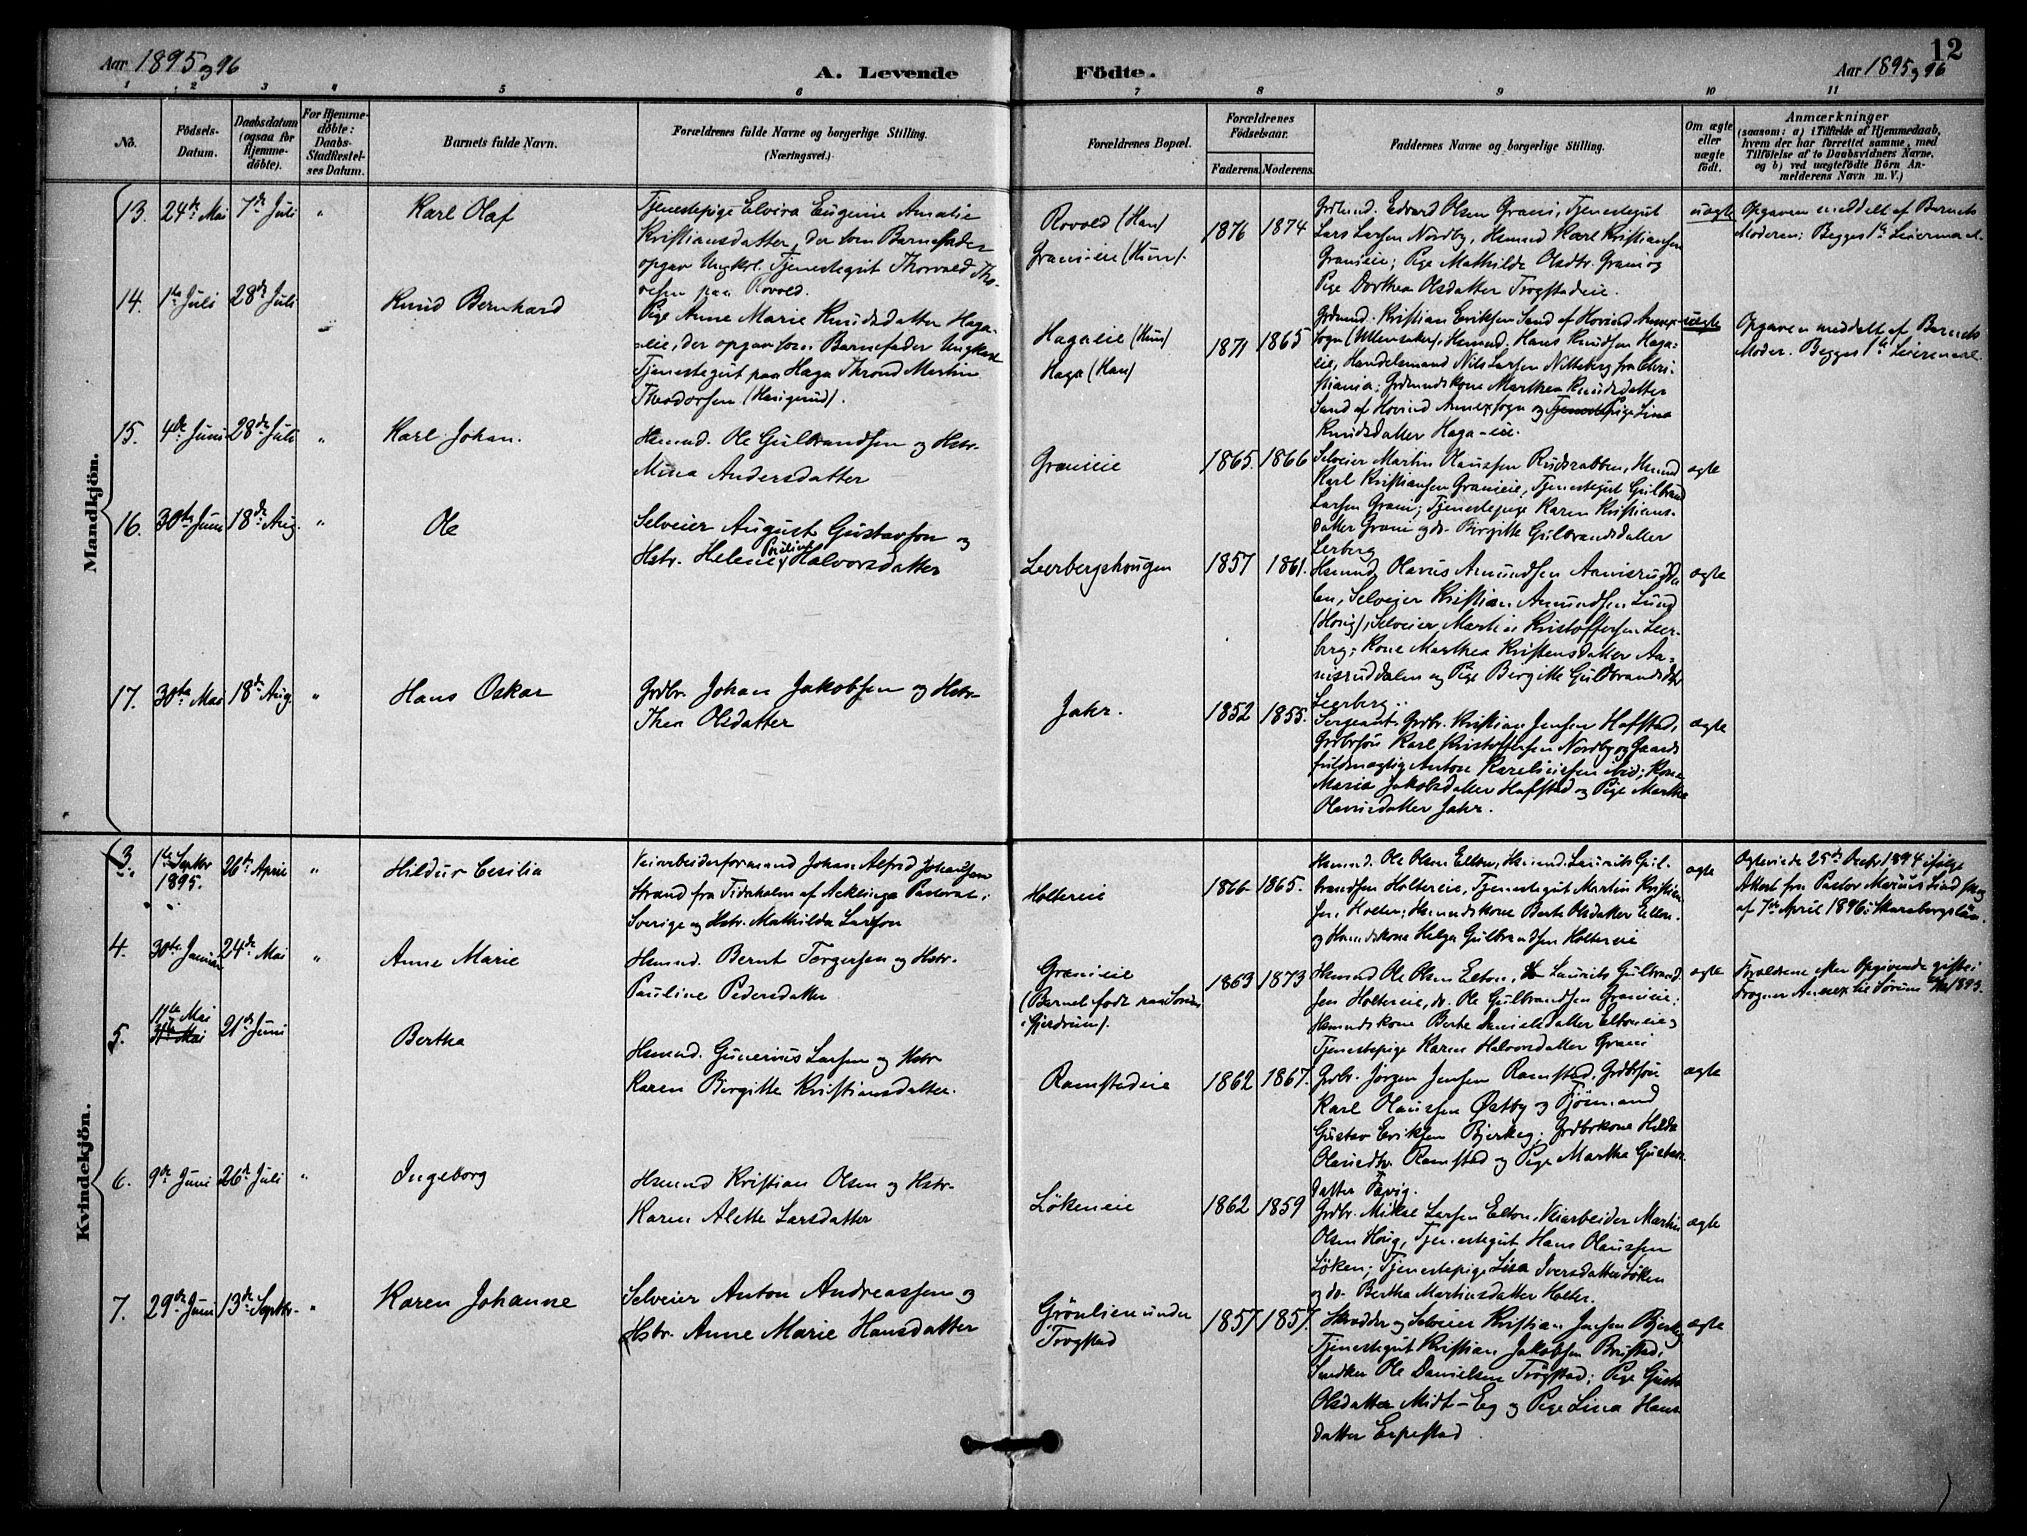 Aar 1895 og 96
A. Levende Födte.
12
Aar 1895 og 96
1 2 3 4 5 6 7 8 9 10 11
No.
Födsels-Datum.
Daabsdatum (ogsaa for Hjemme-döbte).
For Hjemme-döbte: Daabs-Stadfæstel-ses Datum.
Barnets fulde Navn.
Forældrenes fulde Navne og borgerlige Stilling. (Næringsvei.)
Forældrenes Bopæl.
Forældrenes Födselsaar.
Faderens. Moderens.
Faddernes Navne og borgerlige Stilling.
Om ægte eller uægte födt.
Anmærkninger
(saasom: a) i Tilfælde af Hjemmedaab, hvem der har forrettet samme, med Tilföielse af to Daabsvidners Navne, og b) ved uægtefödte Börn An-melderens Navn m. V.)
Mandkjön.
13. 24de Mai 7de Juli " Karl Olaf
Tjenestepige Elvira Eugenie Amalie
Kristiansdatter, der som Barnefader
opgav Ungkl. Tjenestegut Thorvald Tho-
resen paa Rovold.
Rovold (Han)
Granieie (Hun).
1876 1874
Grdmd. Edvard Olsen Grani, Tjenestegut
Lars Larsen Nordby, Hsmnd Karl Kristiansen
Granieie; Pige Mathilde Olsdtr. Grani og
Pige Dorthea Olsdatter Trogstadeie.
uægte
Opgaven meddelt af Barnets
Moder; Begges 1ste Leiermaal.
14. 1ste Juli 28de Juli Knud Bernhard
Pige Anne Marie Knudsdatter Haga-
eie, der opgav som Barnefader Ungkarl
Tjenestegut paa Haga Thrond Martin
Theodorsen (Hasigrud).
Hagaeie (Hun)
Haga (Han)
1871 1865
Grdmd. Kristian Eriksen Sand af Hovind Annex-
sogn (Ullensaker), Hsmnd. Hans Knudsen Haga-
eie, Handelsmand Nils Larsen Nitteberg fra Chri-
stiania; Grdmandskone Marthea Knudsdatter
Sand af Hovind Annexsogn og Pige Lina
Knudsdatter Haga-eie.
uægte
Opgaven meddelt af Barnets
Moder. Begges 1ste Leiermaal.
15. 4de Juni 28de Juli " Karl Johan.
Hsmnd. Ole Gulbrandsen og Hstr.
Mina Andersdatter
Granieie
1865. 1866
Selveier Martin Olaussen Rudsrabben, Hsmnd
Karl Kristiansen Granieie, Tjenestegut Gulbrand
Larsen Grani; Tjenestepige Karen Kristians-
datter Grani og do. Birgitte Gulbrandsdatter
Lerberg
ægte
16. 30te Juni 18de Aug. " Ole
Selveier August Gustavson og
Hstr. Helene Pauline Halvorsdatter
Leerbergshougen
1857 1861.
Hsmnd Olavus Amundsen Aamisrudda-
len, Selveier Kristian Amundsen Lund
(Hörig), Selveier Martin Kristoffersen Leer-
berg; Kone Marthea Kristensdatter Aa-
misruddalen og Pige Birgitte Guldbrandsdtr
Leerberg.
ægte
17. 30te Mai 18de Aug. " Hans Oskar
Grdbr. Johan Jakobsen og Hstr.
Thea Olsdatter
Jahr.
1852 1855.
Sergeant, Grdbr. Kristian Jensen Hafstad,
Grdbrsön Karl Kristoffersen Nordby og Gaards
fuldmægtig Anton Kareliussen ibid; Kone
Maria Jakobsdatter Hafstad og Pige Martha
Olausdatter Jahr.
ægte
Kvindekjön.
3. 1ste Septbr 1895. 26de April " Hildur Cecilia
Veiarbeiderformand Johan Alfred Johansen
Strand fra Tidaholm af Acklinga Pastorat i
Sverige og Hstr. Mathilda Larsson
Holtereie
1866 1865.
Hsmnd. Ole Olsen Elton, Hsmnd. Laurits Gul-
brandsen Holtereie, Tjenestegut Martin Kristian-
sen Holter; Hsmndskone Berte Olsdatter Elton
og Hsmndskone Helga Gulbrandsen Holtereie
ægte
Ægteviede 25de Decbr 1894 ifölge
Attest fra Pastor
af 7de April 1896; Skaraborgs län.
4. 30te Januar 24de Mai " Anne Marie
Hsmnd. Bernt Torgersen og Hstr.
Pauline Pedersdatter
Granieie
(Barnet födt paa
i Gjerdrum).
1863 1873
Hsmnd Ole Olsen Elton, Laurits Gulbrand-
sen Holtereie, do. Ole Gulbrandsen Granieie;
Hsmndskone Berte Danielsdatter Eltoneie og
Tjenestepige Karen Halvorsdatter Grani
ægte
Forældrene efter Opgivende gifte i
Frogner Annex til Sörum 1893.
5. 11te Mai 21de Juni Bertha
Hsmnd. Gunerius Larsen og Hstr
Karen Birgitte Kristiansdatter.
Ramstadeie
1862 1867.
Grdbr. Jörgen Jensen Ramstad, Grdbrsön
Karl Olaussen Østby og
Gustav Eriksen Bjerkeg; Grdbrkone Hilda
Olausdtr. Ramstad og Pige Martha Gustavs-
datter
ægte
6. 9de Juni 26de Juli " Ingeborg
Hsmnd Kristian Olsen og Hstr.
Karen Alette Larsdatter
Lökeneie
1862 1859
Grdbr. Mikal Larsen Elton, Veiarbeider Martin
Olsen Hörig, Tjenestegut Hans Olaussen
Löken; Tjenestepige Lisa Iversdatter Löken
og do. Bertha Martinsdatter Holter.
ægte
7. 29de Juni 13de Septbr. " Karen Johanne
Selveier Anton Andreassen og
Hstr. Anne Marie Hansdatter
Grönlien under
Trogstad
1857 1857.
Skrædder og Selveier Kristian Jensen Bjerkeg
Tjenestegut Kristian Jakobsen
Snedker Ole Danielsen Trögstad; Pige Gusta
Olsdatter Midt-Eg og Pige Lina Hans
datter Erpestad.
ægte